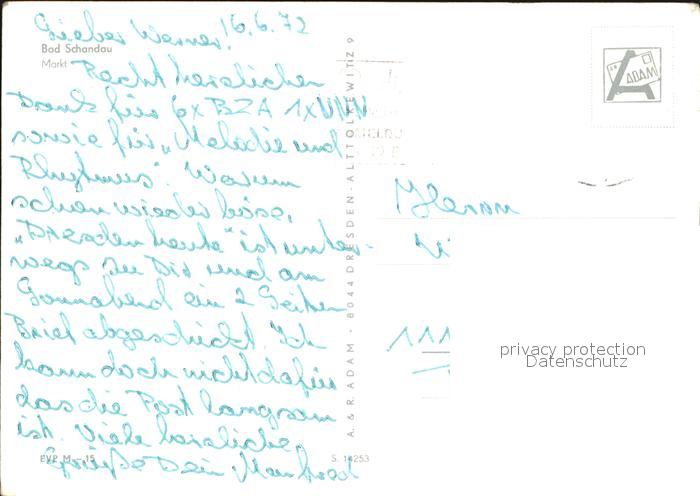 Lieber Werner! 6.6.72
Bad Schandau
Markt
Recht herzlichen
Dank für 6x BZA 1x
sowie für „Melodie und
Rhythmus". Warum
schon wieder böse,
„Dresden heute" ist unter-
wegs zu Dir und am
Sonnabend ein 2 Seiten
Brief abgeschickt. Ich
kann doch nicht dafür
das die Post langsam
ist. Viele herzliche
EVP M -.15
Grüße Dein Manfred
S. 14253
A. & R. ADAM - 8044 DRESDEN - ALTTOLKEWITZ 9
ADAM
Herrn
111
privacy protection
Datenschutz